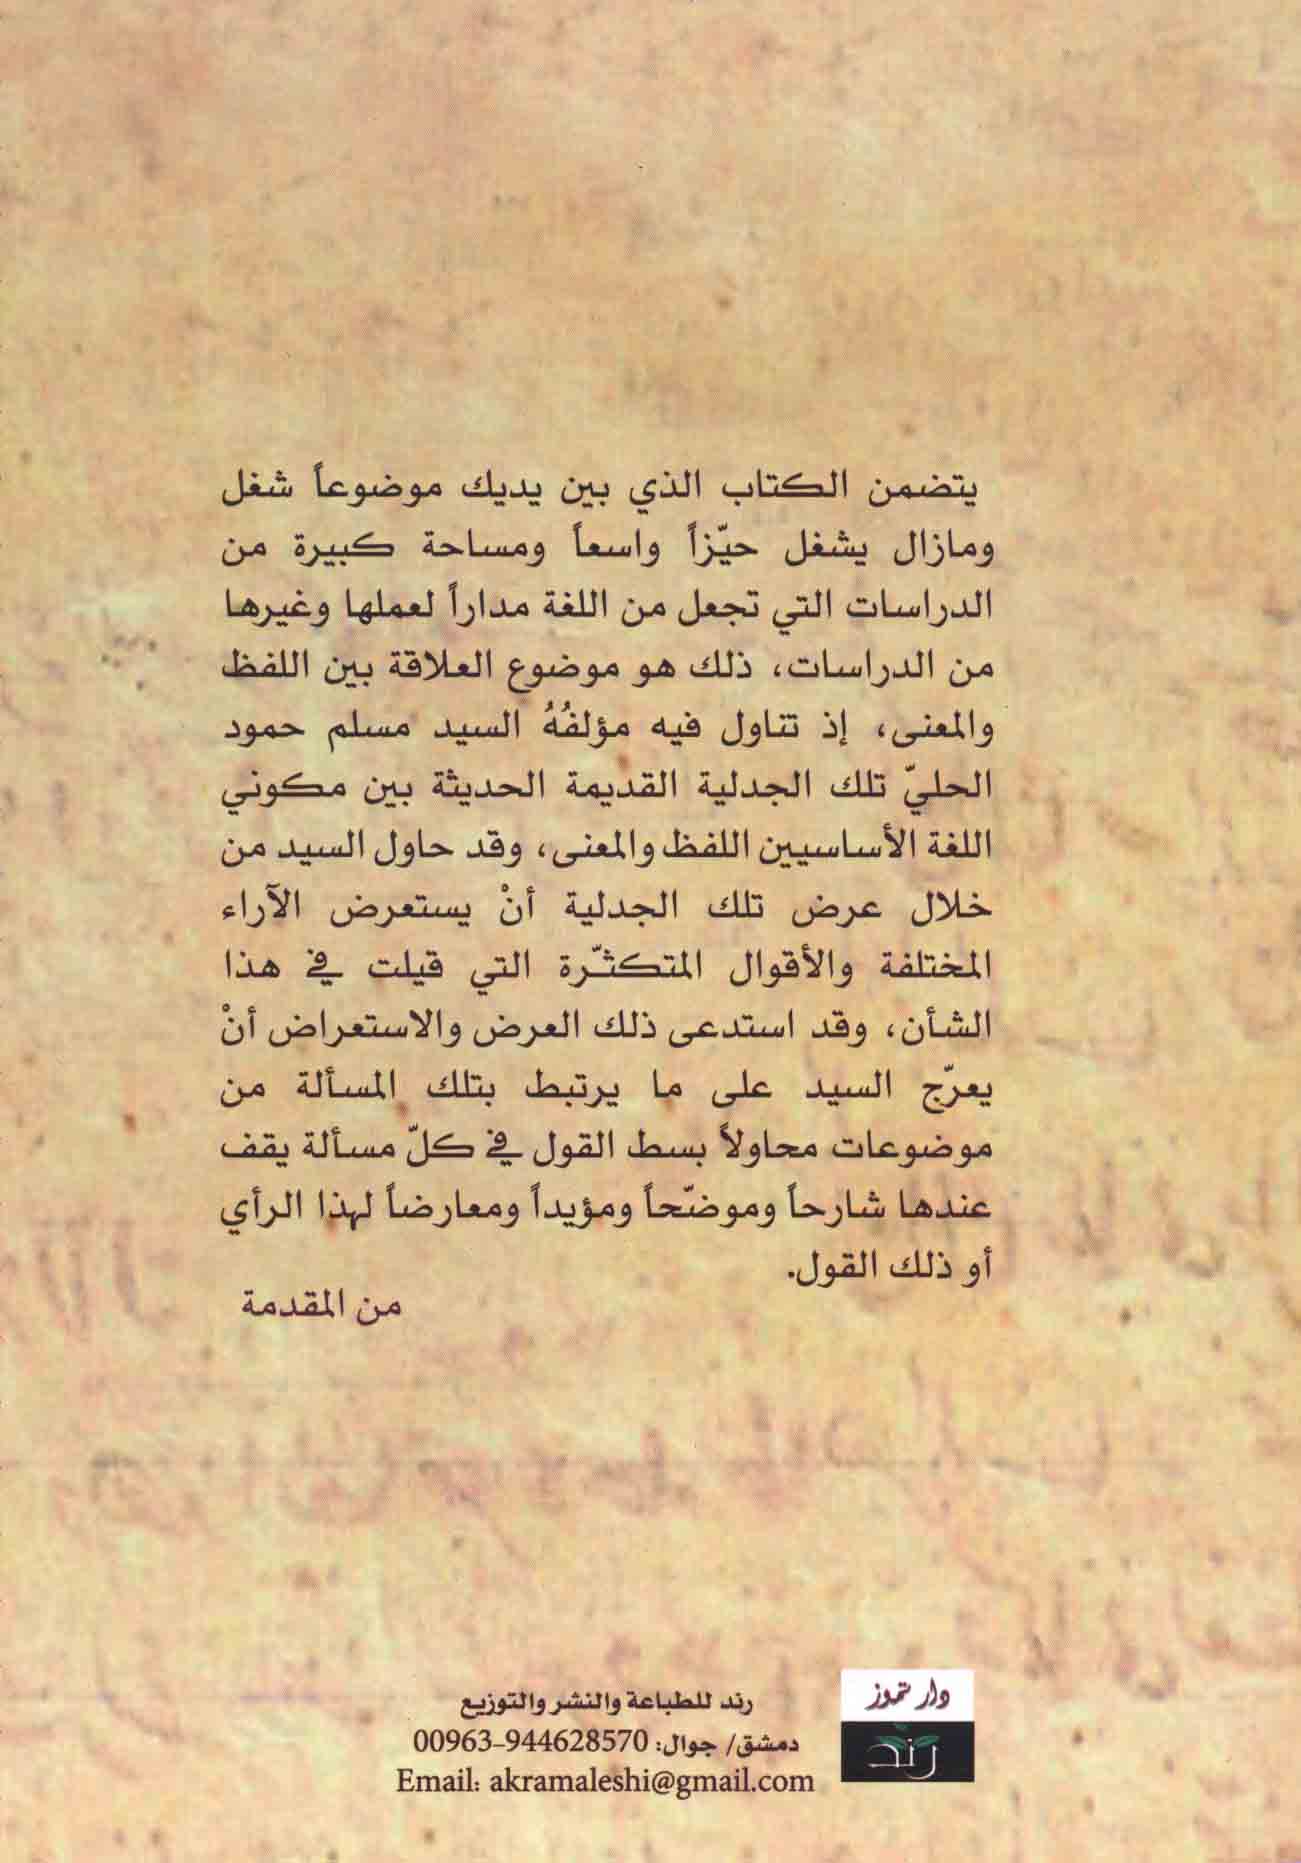 يتضمن الكتاب الذي بين يديك موضوعاً شغل
ومازال يشغل حيّزاً واسعاً ومساحة كبيرة من
الدراسات التي تجعل من اللغة مداراً لعملها وغيرها
من الدراسات، ذلك هو موضوع العلاقة بين اللفظ
والمعنى، إذ تناول فيه مؤلفُهُ السيد مسلم حمود
الحليّ تلك الجدلية القديمة الحديثة بين مكوني
اللغة الأساسيين اللفظ والمعنى، وقد حاول السيد من
خلال عرض تلك الجدلية أنْ يستعرض الآراء
المختلفة والأقوال المتكثّرة التي قيلت في هذا
الشأن، وقد استدعى ذلك العرض والاستعراض أنْ
يعرّج السيد على ما يرتبط بتلك المسألة من
موضوعات محاولاً بسط القول في كلّ مسألة يقف
عندها شارحاً وموضّحاً ومؤيداً ومعارضاً لهذا الرأي
أو ذلك القول.
من المقدمة
دار تموز
رند
رند للطباعة والنشر والتوزيع
دمشق/ جوال: 00963-944628570
Email: akramaleshi@gmail.com